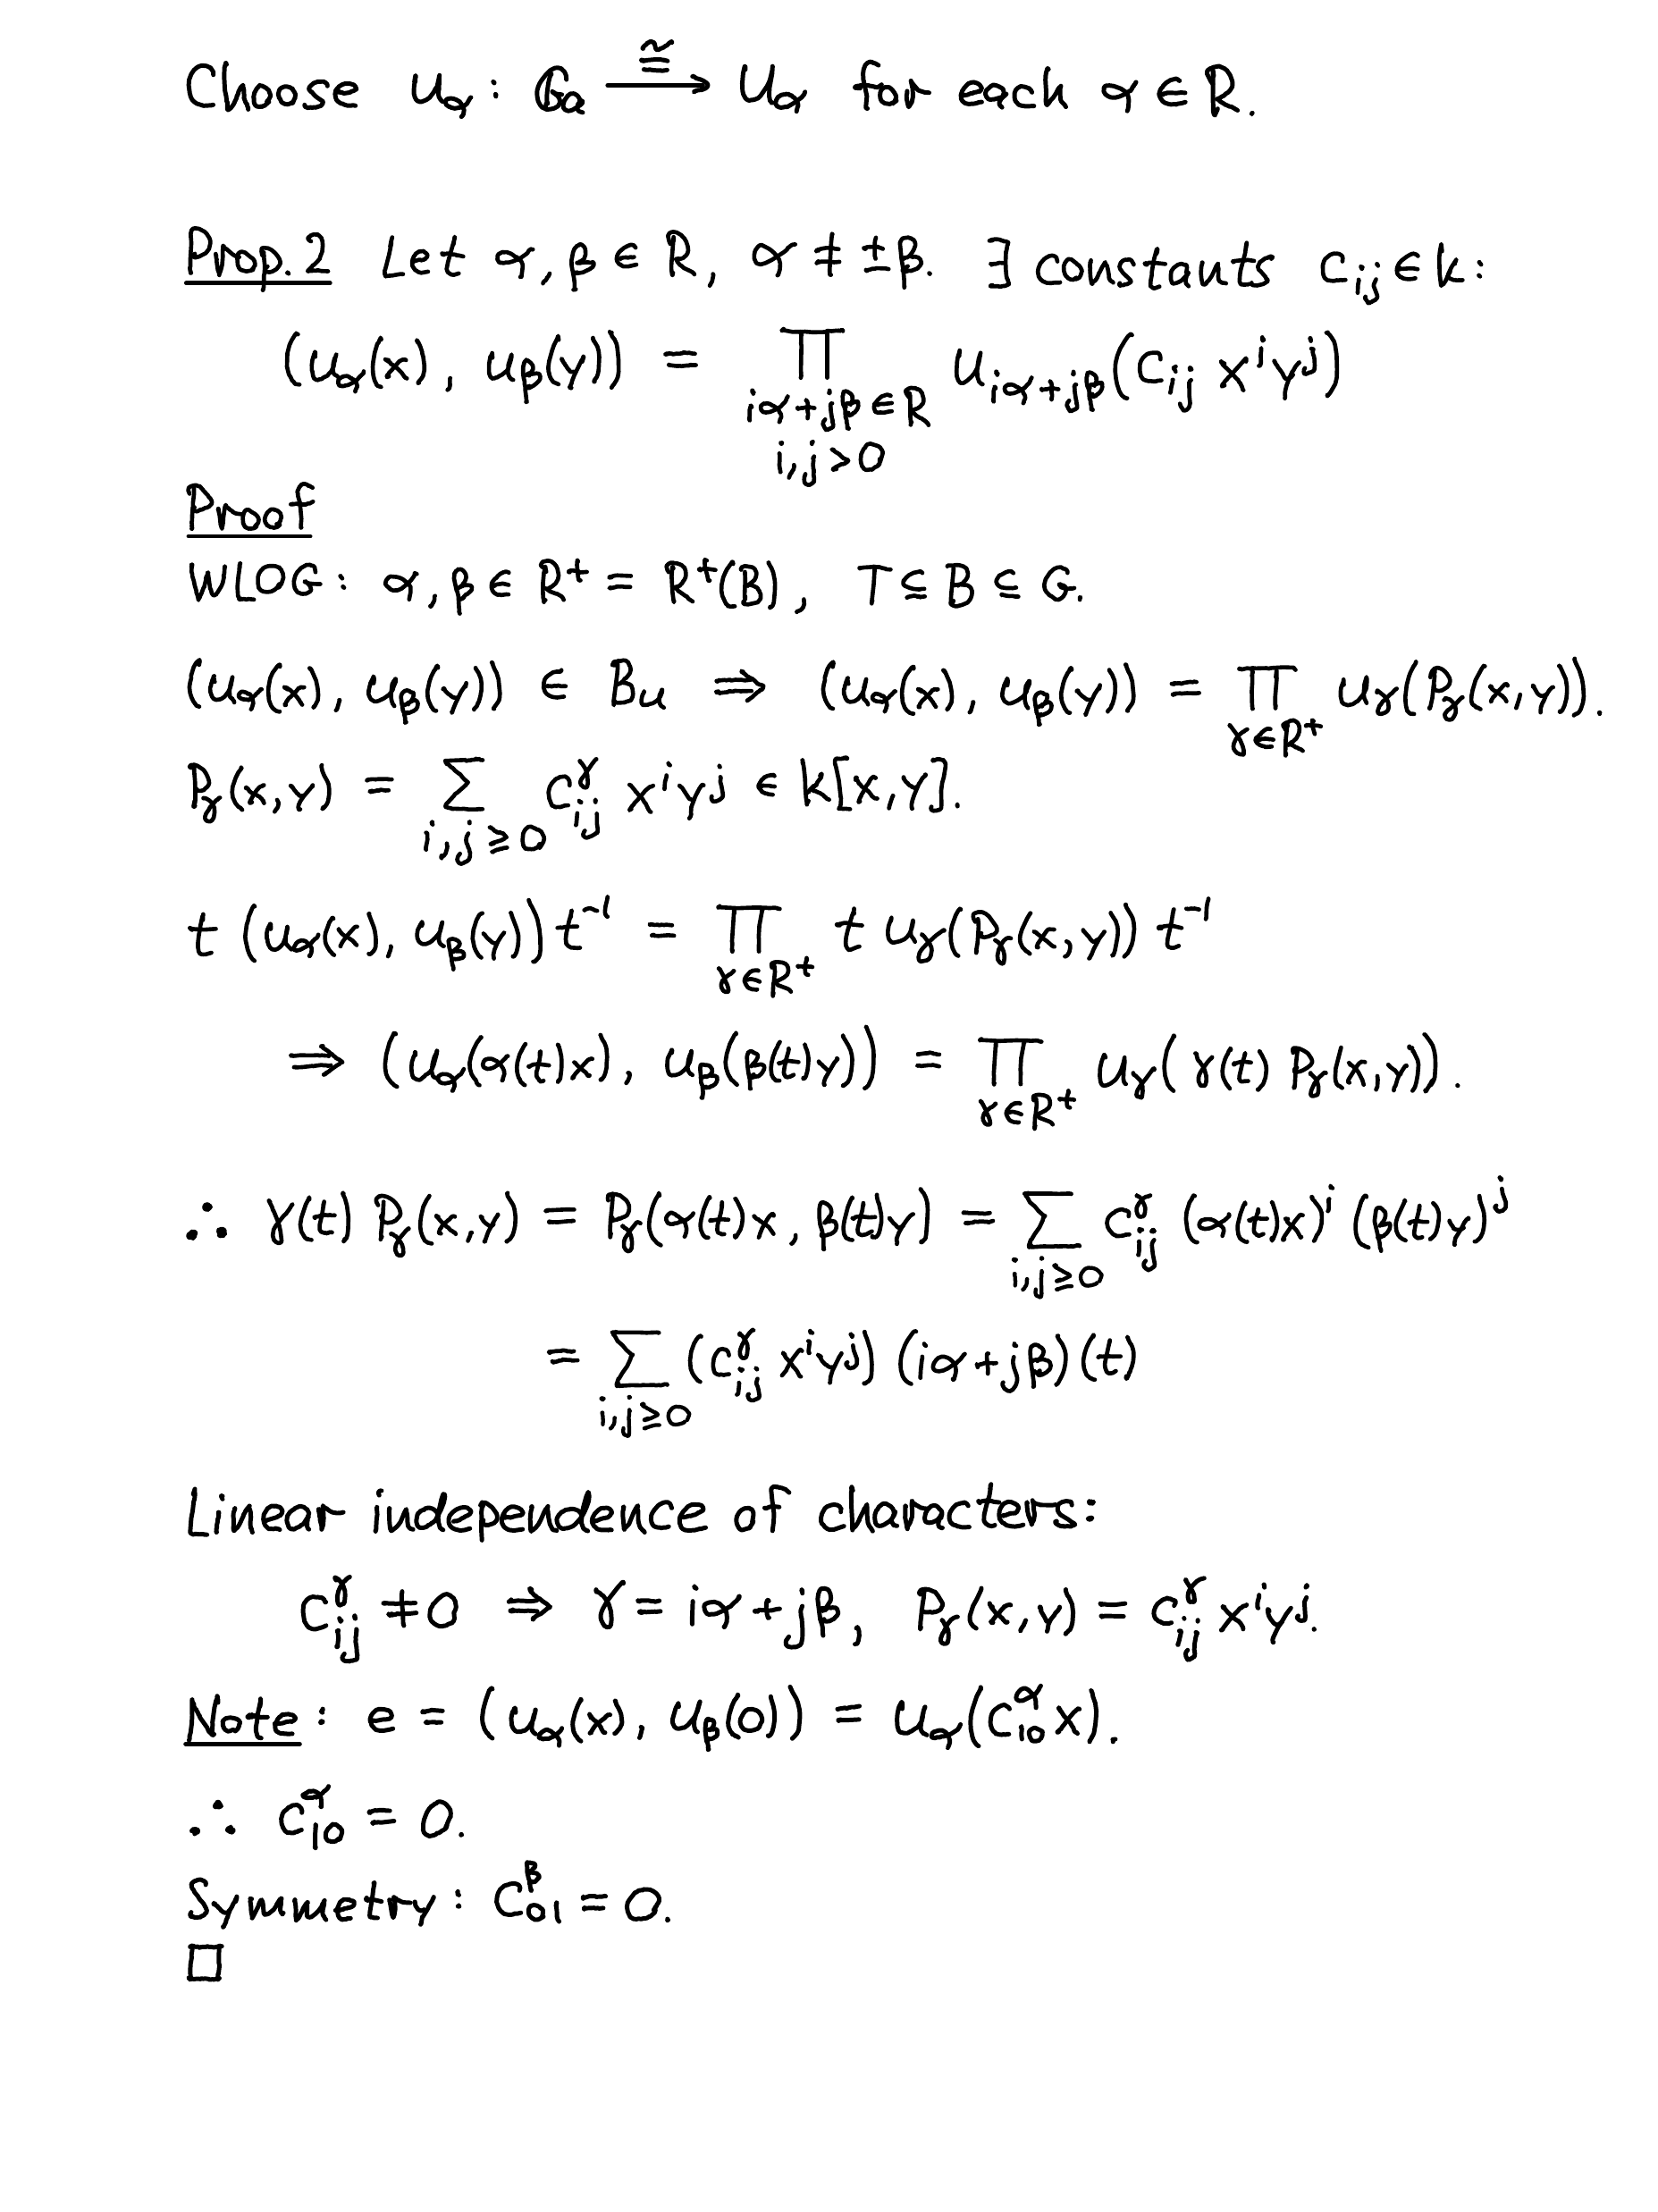 Choose u_α : 𝔾a ≅⟶ U_α for each α ∈ R.
Prop. 2 Let α, β ∈ R, α ≠ ±β. ∃ constants c_ij ∈ k:
(u_α(x), u_β(y)) = ∏_{iα+jβ∈R, i,j>0} u_{iα+jβ}(c_ij x^i y^j)
Proof
WLOG: α, β ∈ R⁺ = R⁺(B), T ⊆ B ⊆ G.
(u_α(x), u_β(y)) ∈ B_u ⇒ (u_α(x), u_β(y)) = ∏_{γ∈R⁺} u_γ(P_γ(x,y)).
P_γ(x,y) = ∑_{i,j≥0} c^γ_ij x^i y^j ∈ k[x,y].
t (u_α(x), u_β(y)) t⁻¹ = ∏_{γ∈R⁺} t u_γ(P_γ(x,y)) t⁻¹
⇒ (u_α(α(t)x), u_β(β(t)y)) = ∏_{γ∈R⁺} u_γ(γ(t) P_γ(x,y)).
∴ γ(t) P_γ(x,y) = P_γ(α(t)x, β(t)y) = ∑_{i,j≥0} c^γ_ij (α(t)x)^i (β(t)y)^j
= ∑_{i,j≥0} (c^γ_ij x^i y^j) (iα+jβ)(t)
Linear independence of characters:
c^γ_ij ≠ 0 ⇒ γ = iα + jβ, P_γ(x,y) = c^γ_ij x^i y^j.
Note: e = (u_α(x), u_β(0)) = u_α(c^α_10 x).
∴ c^α_10 = 0.
Symmetry: c^β_01 = 0.
□